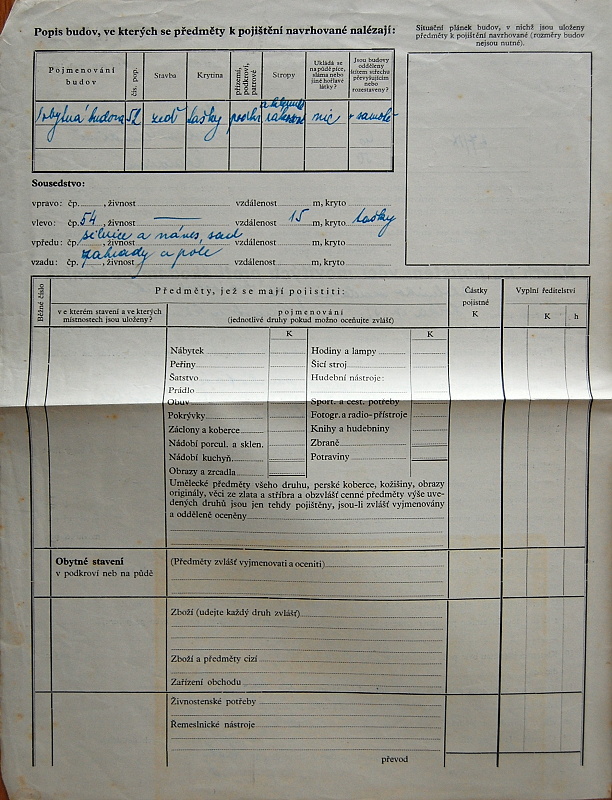 Popis budov, ve kterých se předměty k pojištění navrhované nalézají:
Situační plánek budov, v nichž jsou uloženy
předměty k pojištění navrhované (rozměry budov
nejsou nutné).
Pojmenování
budov
čís. pop.
Stavba
Krytina
přízemí,
podkroví,
patrové
Stropy
Ukládá se
na půdě píce,
sláma nebo
jiné hořlavé
látky?
Jsou budovy
odděleny
štítem střechu
převyšujícím
nebo
rozestaveny?
obytná budova 52 zeď tašky podkr rákosové nic samotě
Sousedstvo:
vpravo: čp. , živnost vzdálenost m, kryto
vlevo: čp. 54 , živnost — vzdálenost 15 m, kryto tašky
silnice a sad
vpředu: čp. , živnost vzdálenost m, kryto
zahrady a pole
vzadu: čp. , živnost vzdálenost m, kryto
Běžné číslo
Předměty, jež se mají pojistiti:
Částky
pojistné
K
Vyplní ředitelství
K h
ve kterém stavení a ve kterých
místnostech jsou uloženy?
pojmenování
(jednotlivé druhy pokud možno oceňujte zvlášť)
K K
Nábytek Hodiny a lampy
Peřiny Šicí stroj
Šatstvo Hudební nástroje:
Prádlo
Obuv Sport. a cest. potřeby
Pokrývky Fotogr. a radio-přístroje
Záclony a koberce Knihy a hudebniny
Nádobí porcul. a sklen. Zbraně
Nádobí kuchyň. Potraviny
Obrazy a zrcadla
Umělecké předměty všeho druhu, perské koberce, kožišiny, obrazy
originály, věci ze zlata a stříbra a obzvlášť cenné předměty výše uve-
dených druhů jsou jen tehdy pojištěny, jsou-li zvlášť vyjmenovány
a odděleně oceněny
Obytné stavení
v podkroví neb na půdě
(Předměty zvlášť vyjmenovati a oceniti)
Zboží (udejte každý druh zvlášť)
Zboží a předměty cizí
Zařízení obchodu
Živnostenské potřeby
Řemeslnické nástroje
převod